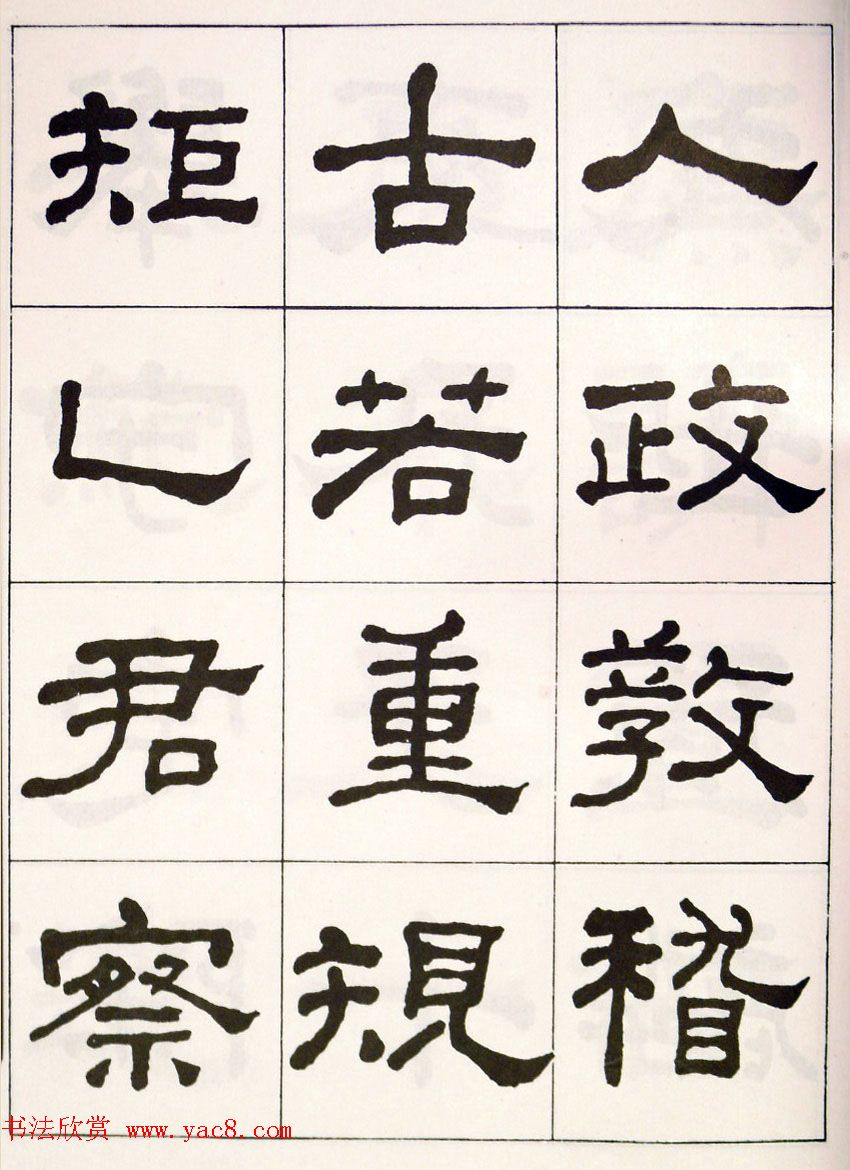 人政教稽
古若重規
矩乙君察
书法欣赏 www.yac8.com